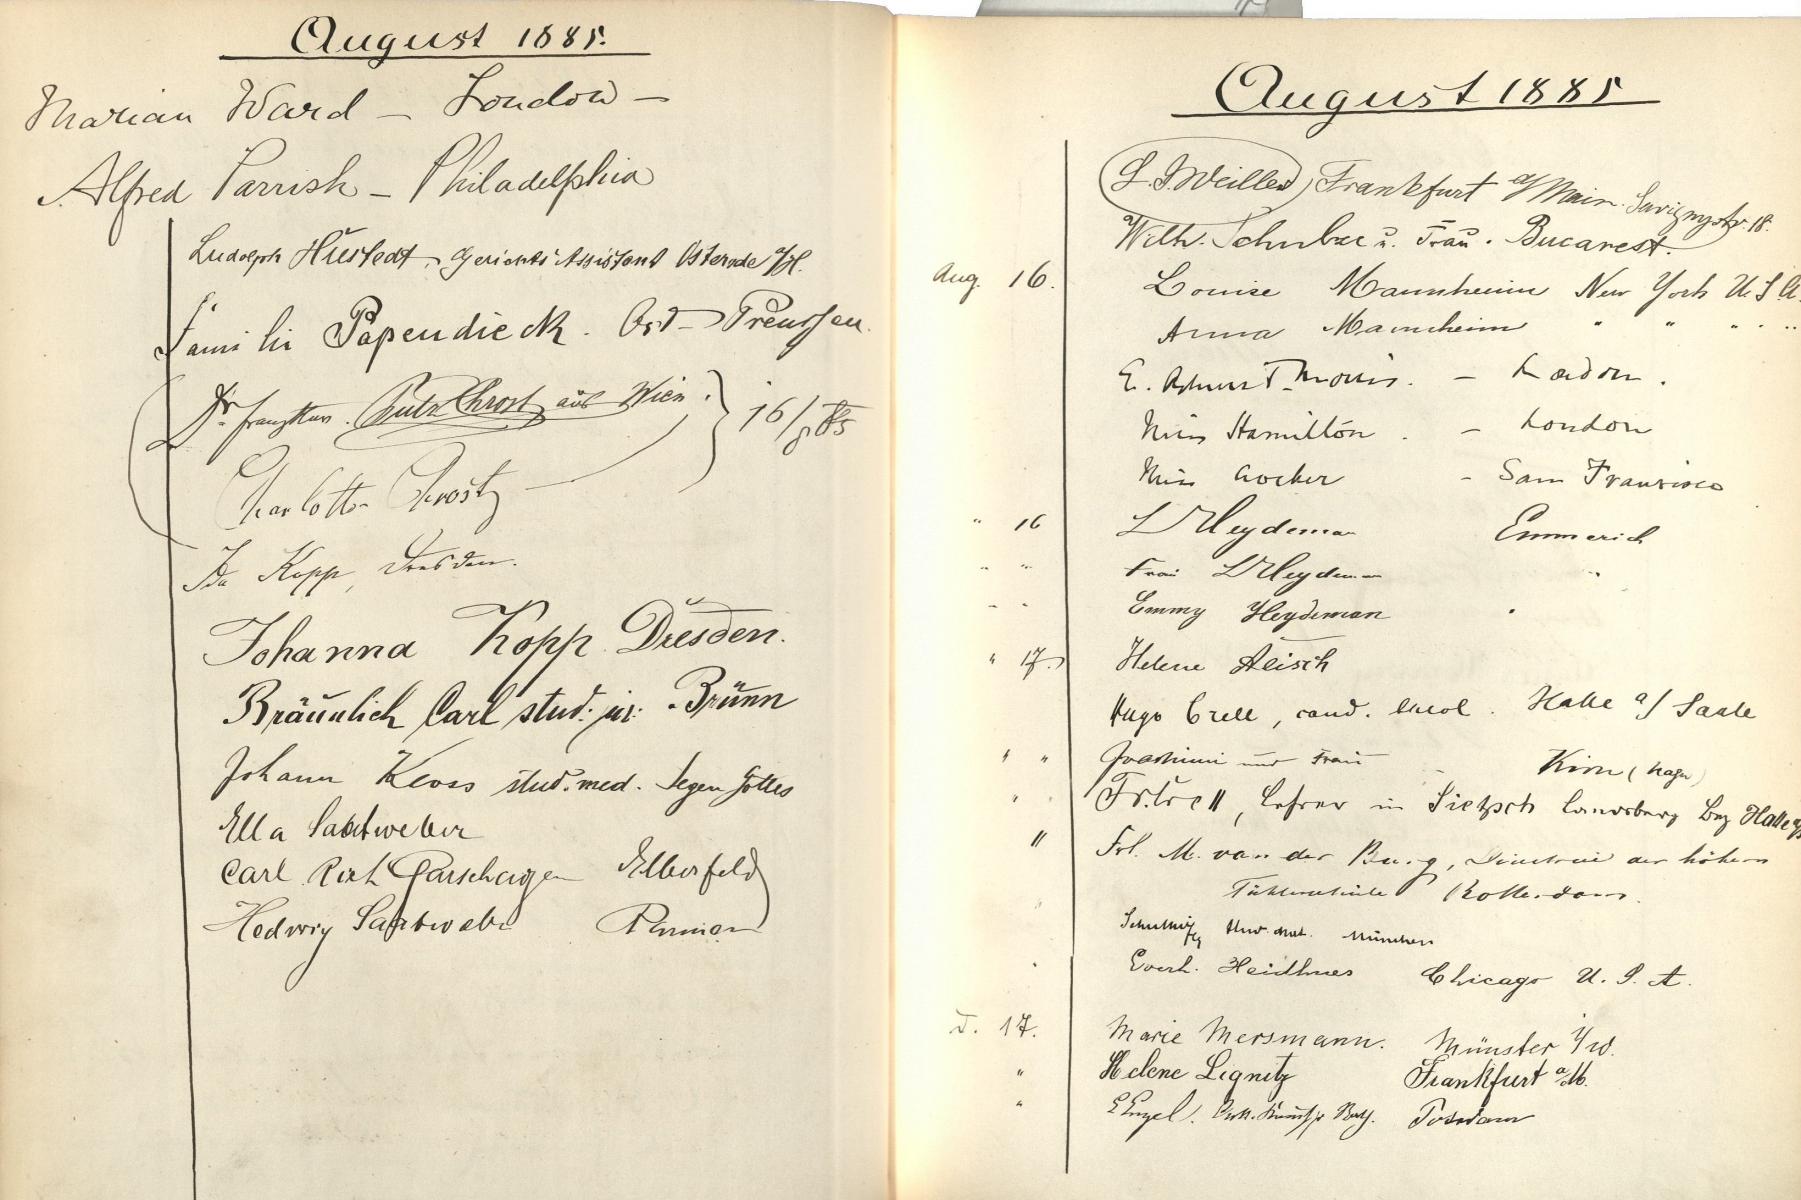 August 1885.
Marian Ward – London –
Alfred Parrish – Philadelphia
Ludolph Hüstedt, Gerichts Assistent Osterode a/H.
Papendieck. Ost-Preussen.
Dr. aus Wien. 16/8 85
Charlotte
Ida Kopp, Dresden.
Johanna Kopp Dresden.
Bräunlich Carl stud: jur: Brünn
Johann Kloss stud. med. Segen Gottes
Ella
Carl Rich Garschagen Elberfeld
Hedwig
August 1885
Frankfurt a/Main. Savignystr. 18.
Wilh. Schulze u. Frau. Bucarest.
Aug. 16. Louise Mannheim New York U.S.A.
Anna Mannheim " " " " "
E. Morris. – London.
Miss Hamilton. – London
Miss Crocker – San Francisco
" 16 L Heydeman Emmerich
" " Frau L Heydeman "
" " Emmy Heydeman "
" 17. Helene
Hugo Crell, cand. theol. Halle a/Saale
" " Joachimi und Frau – Kirn (Nahe)
" " Fr. Crell, Lehrer in Landsberg Bez Halle a/S
" Frl. M. van der Burg, Directrice der höhern
Töchterschule Rotterdam.
" München
" Everh. Chicago U. S. A.
d. 17. Marie Mersmann. Münster i/W.
" Helene Lignitz Frankfurt a/M.
" E Engel. Potsdam